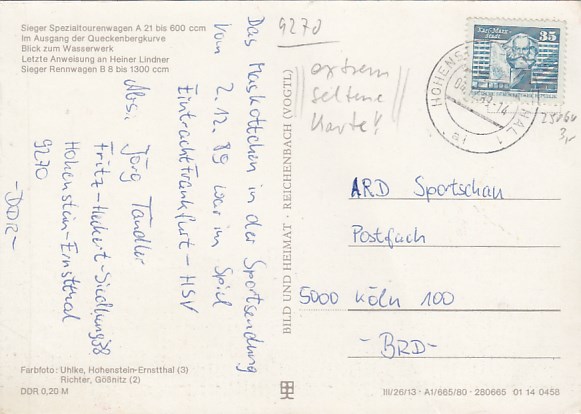 Sieger Spezialtourenwagen A 21 bis 600 ccm
Im Ausgang der Queckenbergkurve
Blick zum Wasserwerk
Letzte Anweisung an Heiner Lindner
Sieger Rennwagen B 8 bis 1300 ccm
Das Maskottchen in der Sportsendung
vom 2.12.89 war im Spiel
Eintracht Frankfurt - HSV
Abs. Jörg Tandler
Fritz-Heckert-Siedlung 38
Hohenstein-Ernstthal
9270
-DDR-
Farbfoto: Uhlke, Hohenstein-Ernstthal (3)
Richter, Gößnitz (2)
DDR 0,20 M
BILD UND HEIMAT · REICHENBACH (VOGTL)
9270
extrem
seltene
Karte!
Karl-Marx-
Stadt
35
3,-
ARD Sportschau
Postfach
5000 Köln 100
- BRD -
III/26/13 · A1/665/80 · 280665 01 14 0458